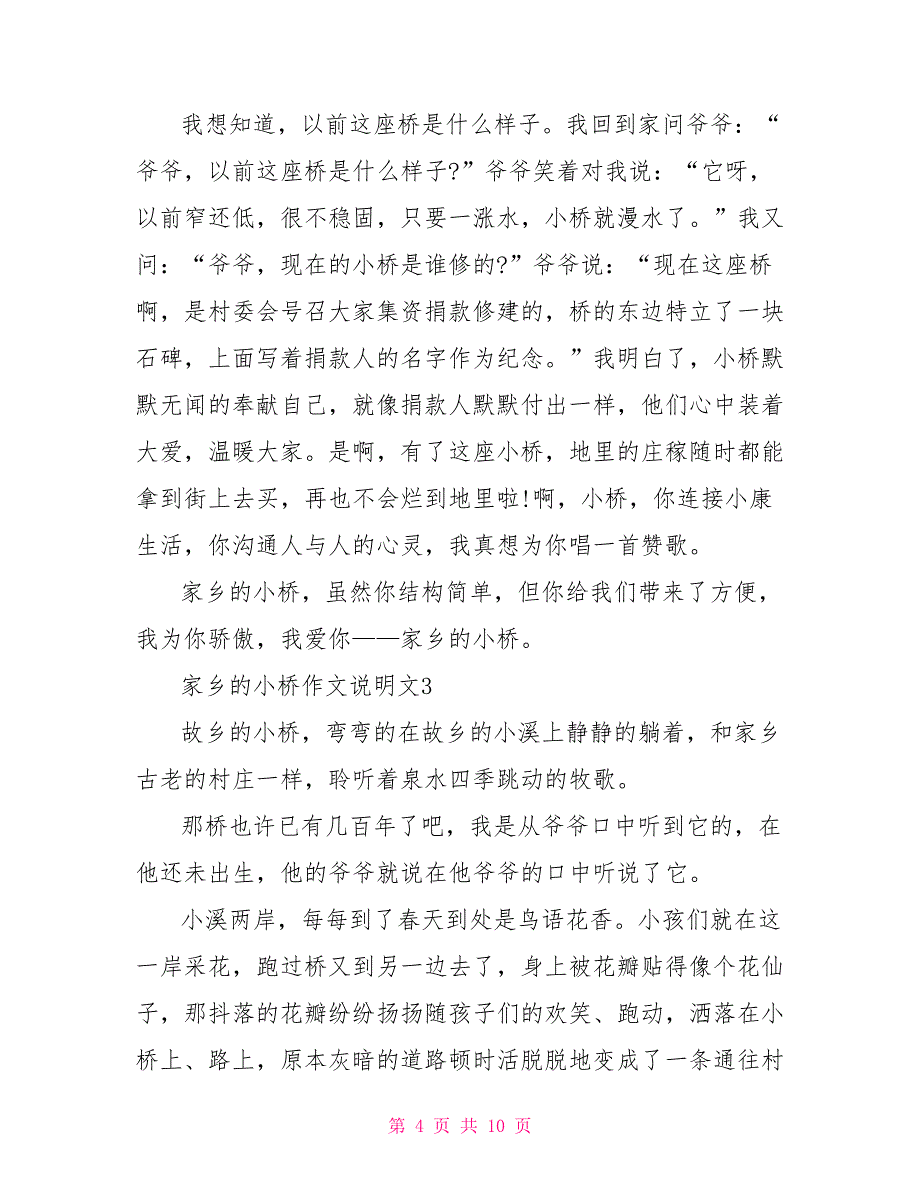 我想知道，以前这座桥是什么样子。我回到家问爷爷：“
爷爷，以前这座桥是什么样子?”爷爷笑着对我说：“它呀，
以前窄还低，很不稳固，只要一涨水，小桥就漫水了。”我又
问：“爷爷，现在的小桥是谁修的?”爷爷说：“现在这座桥
啊，是村委会号召大家集资捐款修建的，桥的东边特立了一块
石碑，上面写着捐款人的名字作为纪念。”我明白了，小桥默
默无闻的奉献自己，就像捐款人默默付出一样，他们心中装着
大爱，温暖大家。是啊，有了这座小桥，地里的庄稼随时都能
拿到街上去买，再也不会烂到地里啦!啊，小桥，你连接小康
生活，你沟通人与人的心灵，我真想为你唱一首赞歌。
家乡的小桥，虽然你结构简单，但你给我们带来了方便，
我为你骄傲，我爱你——家乡的小桥。
家乡的小桥作文说明文3
故乡的小桥，弯弯的在故乡的小溪上静静的躺着，和家乡
古老的村庄一样，聆听着泉水四季跳动的牧歌。
那桥也许已有几百年了吧，我是从爷爷口中听到它的，在
他还未出生，他的爷爷就说在他爷爷的口中听说了它。
小溪两岸，每每到了春天到处是鸟语花香。小孩们就在这
一岸采花，跑过桥又到另一边去了，身上被花瓣贴得像个花仙
子，那抖落的花瓣纷纷扬扬随孩子们的欢笑、跑动，洒落在小
桥上、路上，原本灰暗的道路顿时活脱脱地变成了一条通往村
第 4 页 共 10 页